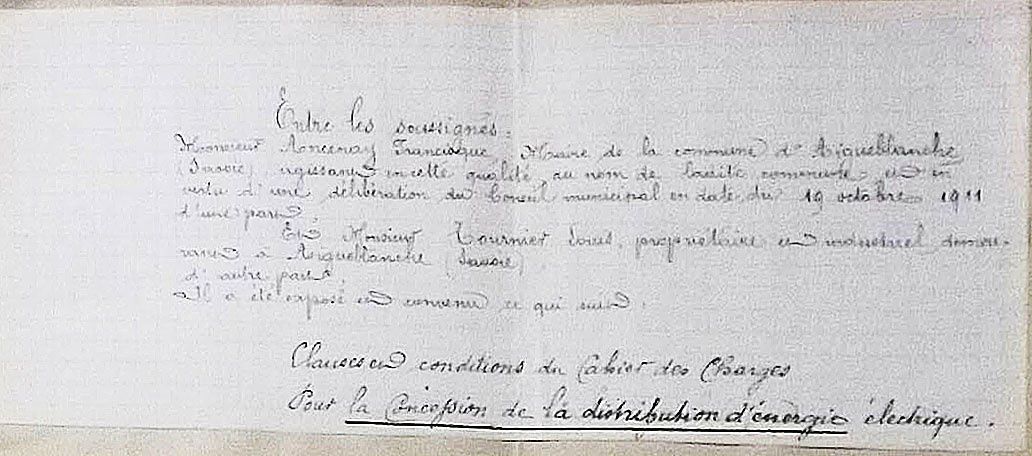 Entre les soussignés :
Monsieur Ancenay Francisque, Maire de la commune d'Aigueblanche
(Savoie) agissant en cette qualité au nom de ladite commune et en
vertu d'une délibération du Conseil municipal en date du 19 octobre 1911
d'une part,
Et Monsieur Tournier Louis, propriétaire et industriel demeu-
rant à Aigueblanche (Savoie)
d'autre part,
Il a été exposé et convenu ce qui suit.
Clauses et conditions du Cahier des Charges
Pour la Concession de la distribution d'énergie électrique.